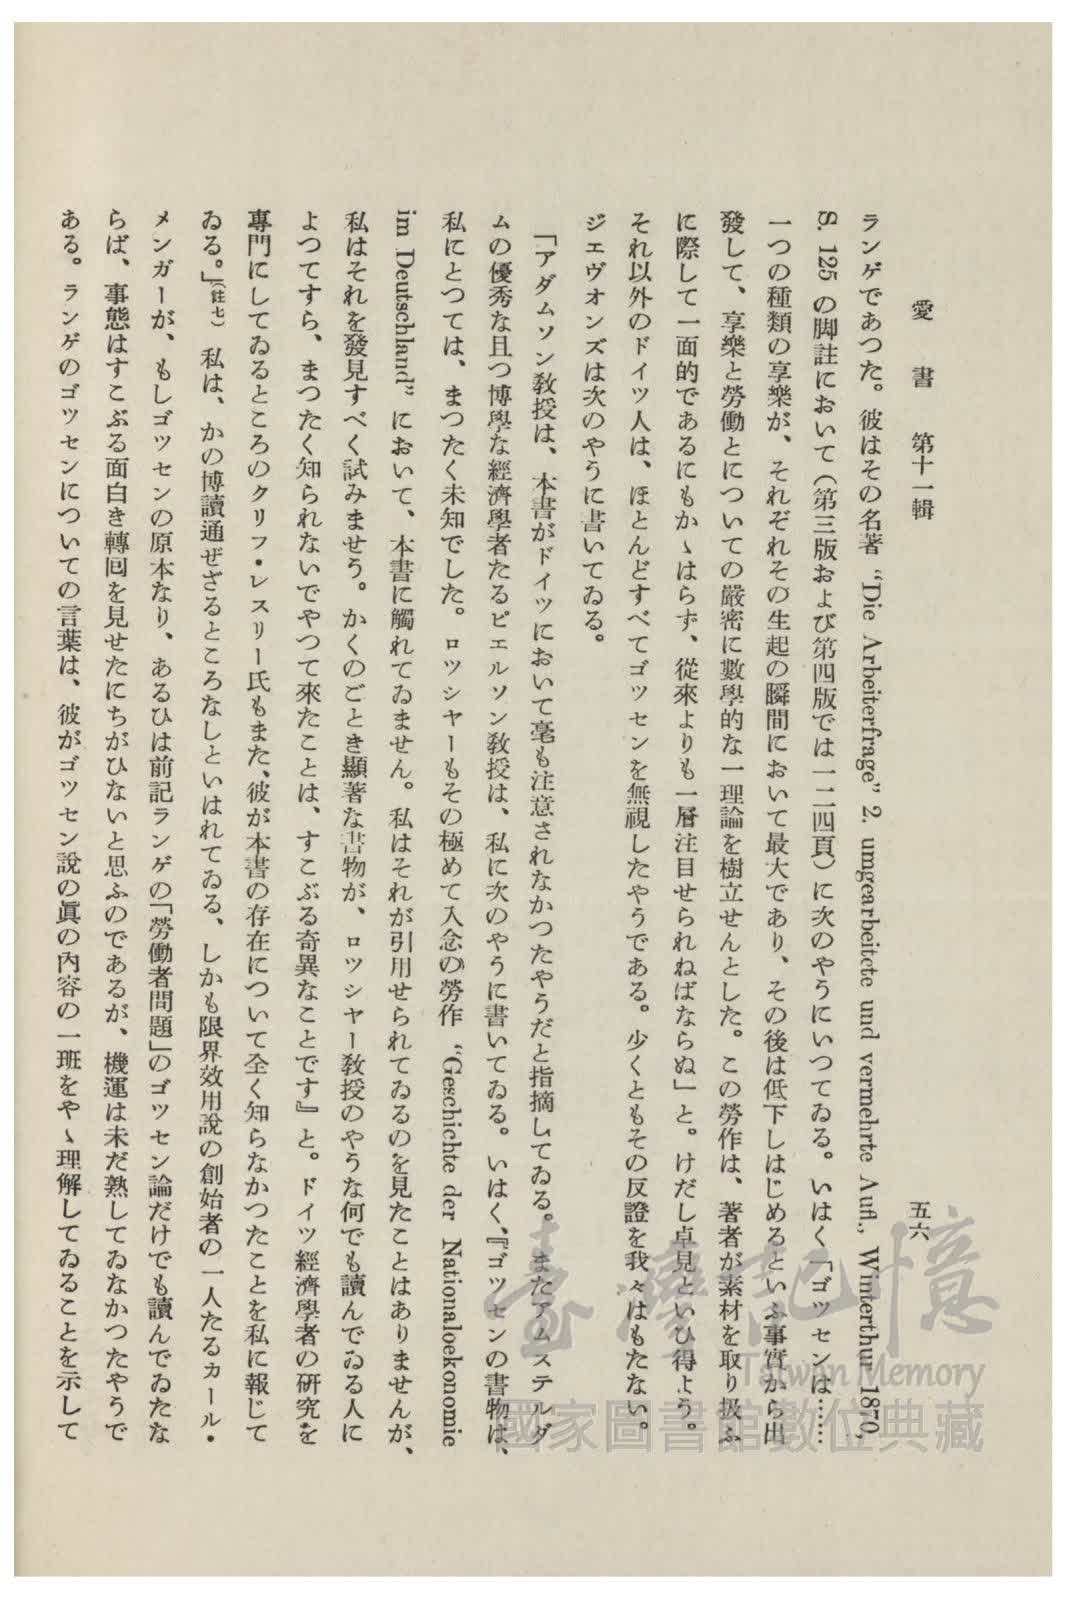 愛書　第十一輯
五六
ランゲであつた。彼はその名著 “Die Arbeiterfrage” 2. umgearbeitete und vermehrte Aufl., Winterthur 1870,
S. 125 の脚註において（第三版および第四版では一二四頁）に次のやうにいつてゐる。いはく「ゴツセンは……
一つの種類の享樂が、それぞれその生起の瞬間において最大であり、その後は低下しはじめるといふ事實から出
發して、享樂と勞働とについての嚴密に數學的な一理論を樹立せんとした。この勞作は、著者が素材を取り扱ふ
に際して一面的であるにもかゝはらず、從來よりも一層注目せられねばならぬ」と。けだし卓見といひ得よう。
それ以外のドイツ人は、ほとんどすべてゴツセンを無視したやうである。少くともその反證を我々はもたない。
ジエヴオンズは次のやうに書いてゐる。
「アダムソン敎授は、本書がドイツにおいて毫も注意されなかつたやうだと指摘してゐる。またアムステルダ
ムの優秀な且つ博學な經濟學者たるピエルソン敎授は、私に次のやうに書いてゐる。いはく、『ゴツセンの書物は、
私にとつては、まつたく未知でした。ロツシヤーもその極めて入念の勞作 “Geschichte der Nationaloekonomie
im Deutschland” において、本書に觸れてゐません。私はそれが引用せられてゐるのを見たことはありませんが、
私はそれを發見すべく試みませう。かくのごとき顯著な書物が、ロツシヤー敎授のやうな何でも讀んでゐる人に
よつてすら、まつたく知られないでやつて來たことは、すこぶる奇異なことです』と。ドイツ經濟學者の研究を
專門にしてゐるところのクリフ・レスリー氏もまた、彼が本書の存在について全く知らなかつたことを私に報じて
ゐる。」（註七）　私は、かの博讀通ぜざるところなしといはれてゐる、しかも限界效用說の創始者の一人たるカール・
メンガーが、もしゴツセンの原本なり、あるひは前記ランゲの「勞働者問題」のゴツセン論だけでも讀んでゐたな
らば、事態はすこぶる面白き轉囘を見せたにちがひないと思ふのであるが、機運は未だ熟してゐなかつたやうで
ある。ランゲのゴツセンについての言葉は、彼がゴツセン說の眞の內容の一班をやゝ理解してゐることを示して
臺灣記憶
Taiwan Memory
國家圖書館數位典藏